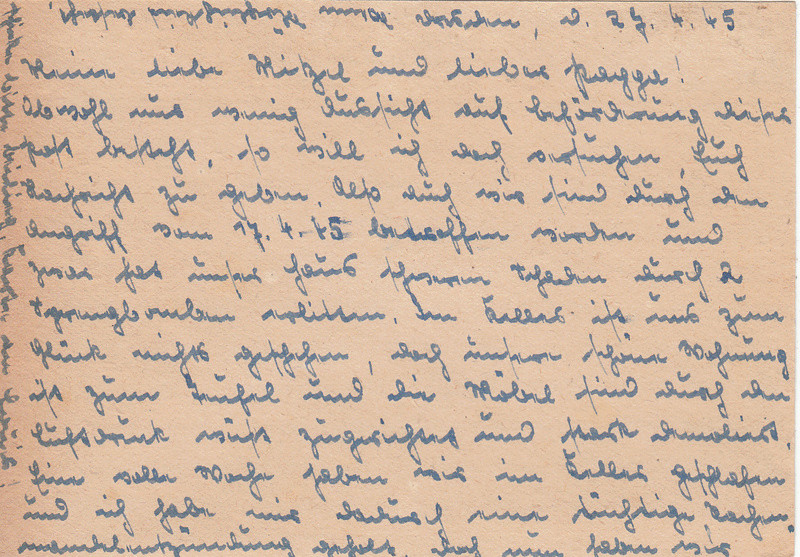 Dresden, d. 27.4.45
Meine liebe Mitzel und lieber Pagga!
Obwohl nur wenig Aussicht auf Beförderung dieser
Post besteht, so will ich doch versuchen, Euch
Nachricht zu geben. Also auch wir sind durch den
Angriff vom 17.4.45 betroffen worden und
zwar hat unser Haus schweren Schaden durch 2
Sprengbomben erlitten. Im Keller ist uns zum
Glück nichts geschehen, doch unsere schöne Wohnung
ist zum Teufel und die Möbel sind durch den
Luftdruck wüst zugerichtet und stark demoliert.
Eine volle Woche haben wir im Keller geschlafen
und ich habe mir dadurch eine tüchtige Rachen-
mandelentzündung geholt. Doch nun haben wir